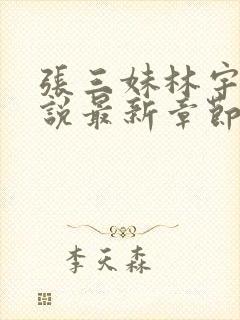 張三妹林宇
說最新章節
李天森